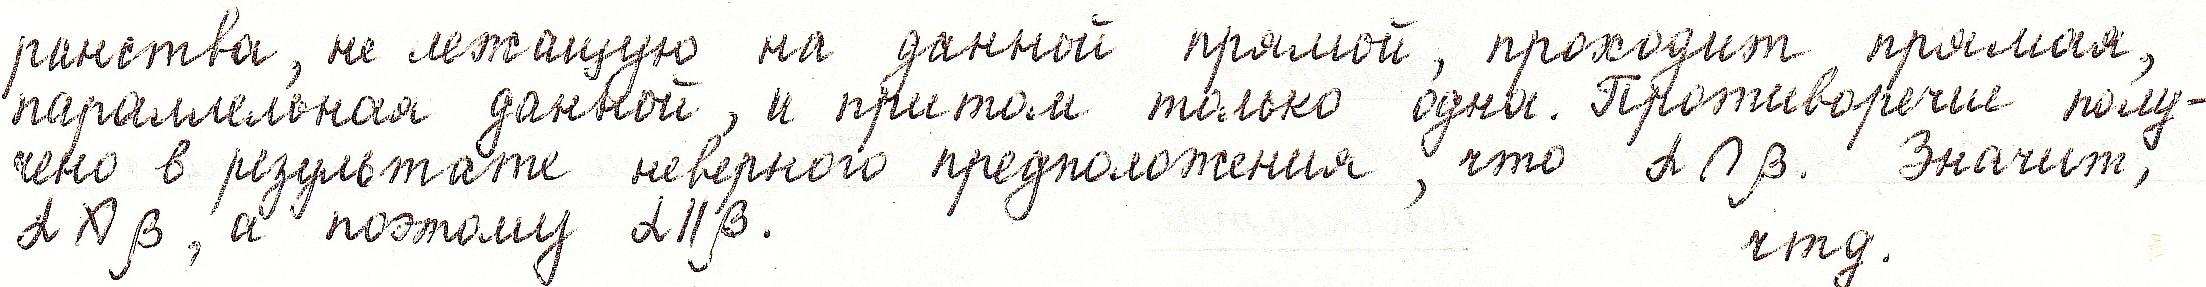 ранства, не лежащую на данной прямой, проходит прямая,
параллельная данной, и притом только одна. Противоречие полу-
чено в результате неверного предположения, что α ∩ β. Значит,
α ∩̸ β, а поэтому α || β.
чтд.